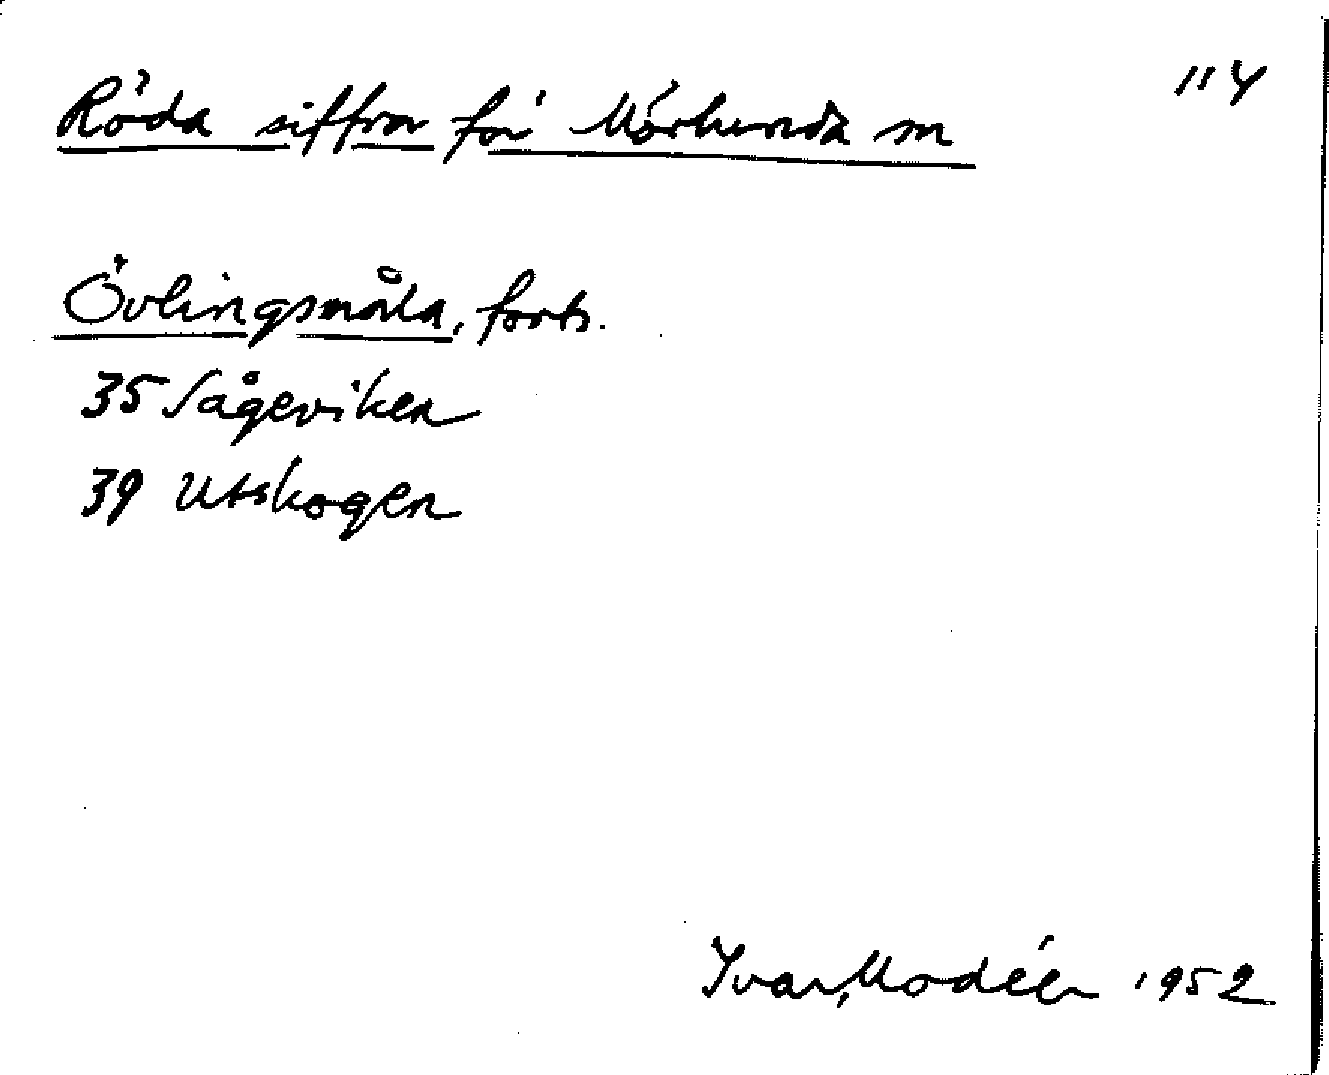 114
Röda siffror för Mörlunda sn
Övlingsmåla, forts.
35 Sågeviken
39 Utskogen
Ivar Modéer 1952